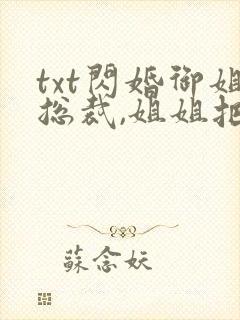 txt閃婚御姐
总裁,姐姐把
蘇念妖